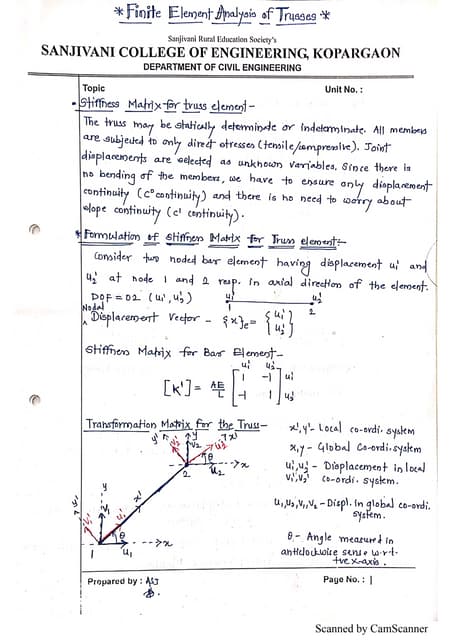 * Finite Element Analysis of Trusses *
Sanjivani Rural Education Society's
SANJIVANI COLLEGE OF ENGINEERING, KOPARGAON
DEPARTMENT OF CIVIL ENGINEERING
Topic
Unit No. :
• Stiffness Matrix for truss element –
The truss may be statically determinate or indeterminate. All members
are subjected to only direct stresses (tensile/compressive). Joint
displacements are selected as unknown variables. Since there is
no bending of the members, we have to ensure only displacement
continuity (c° continuity) and there is no need to worry about
slope continuity (c' continuity).
* Formulation of stiffness Matrix for Truss element:–
consider two noded bar element having displacement u₁' and
u₂' at node 1 and 2 resp. in axial direction of the element.
DOF = 02 (u₁', u₂')
u₁' u₂'
1 2
Nodal
Displacement Vector – {x}e = {u₁' u₂'}
Stiffness Matrix for Bar Element –
u₁' u₂'
[K'] = AE/L [1 -1] u₁'
[-1 1] u₂'
Transformation Matrix for the Truss –
x',y' – Local co-ordi. system
x,y – Global Co-ordi. system
u₁',u₂' – Displacement in local
v₁',v₂' co-ordi. system.
u₁,u₂,v₁,v₂ – Displ. in global co-ordi.
system.
θ – Angle measured in
anticlockwise sense w.r.t.
+ve x-axis.
y' v₂' y v₂ u₂' x'
θ
2 u₂ x
y' y v₁' v₁ u₁' x'
θ
1 u₁ x
Prepared by :
Page No. : 1
Scanned by CamScanner